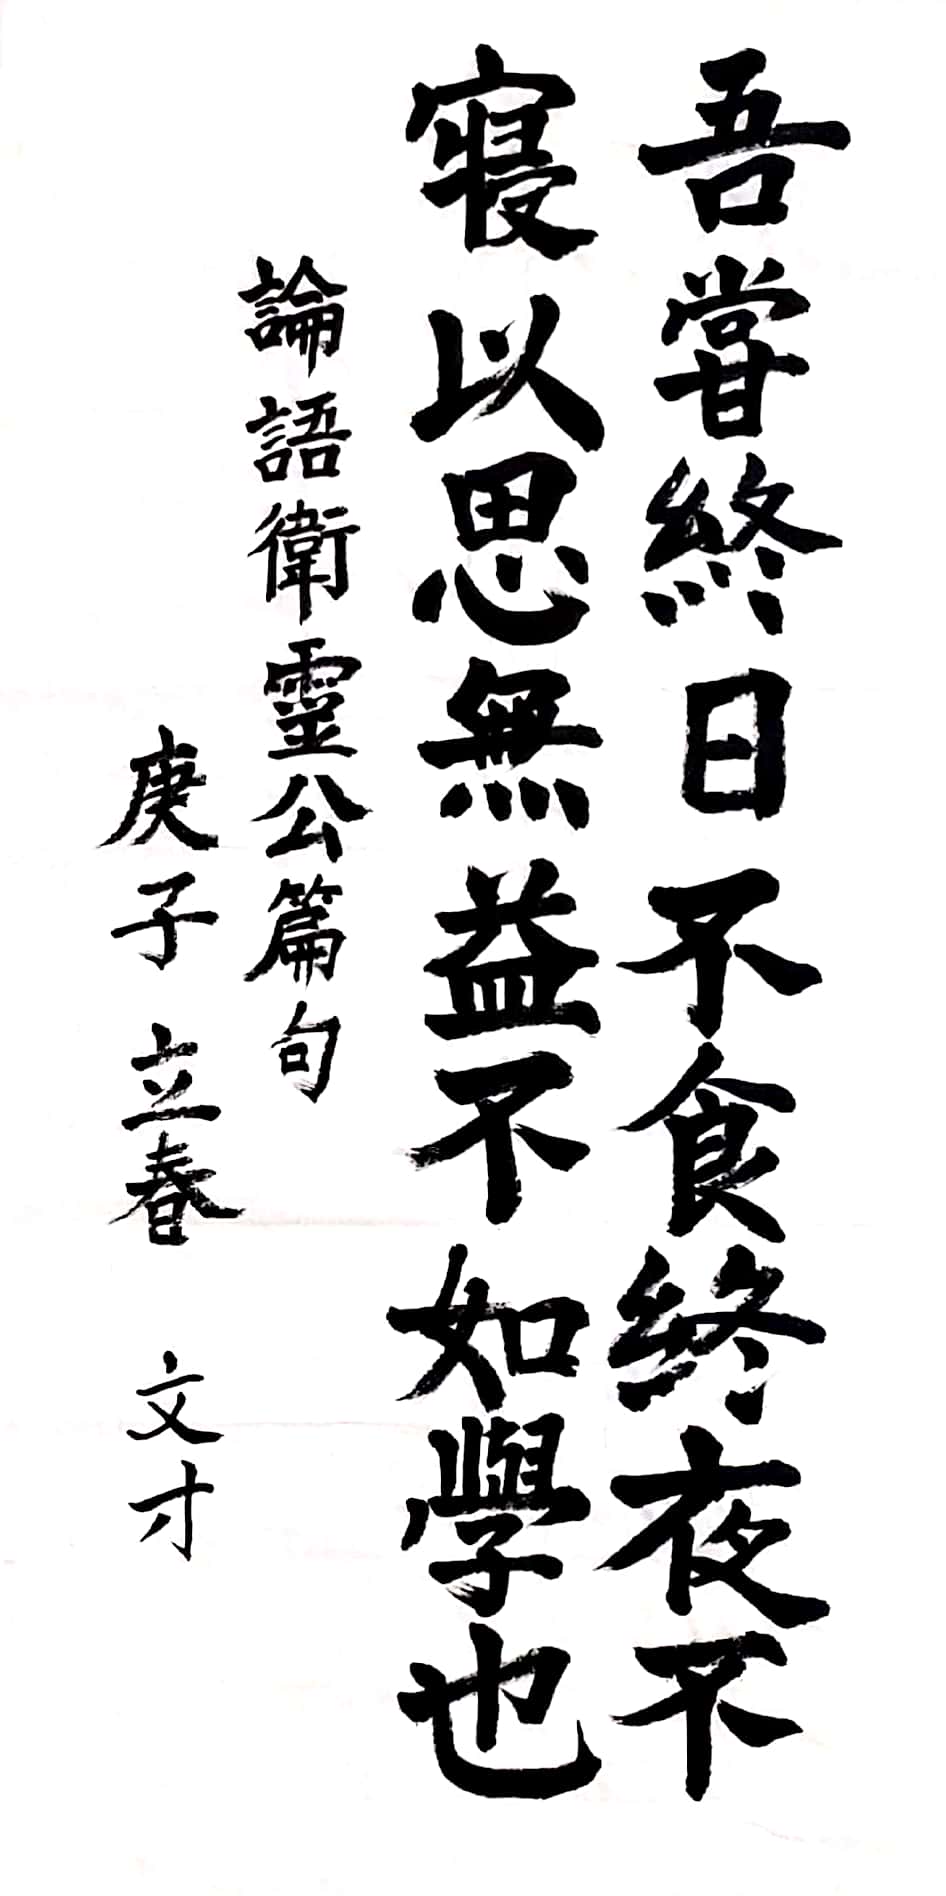 吾嘗終日不食終夜不
寢以思無益不如學也
論語衛靈公篇句
庚子立春 文才